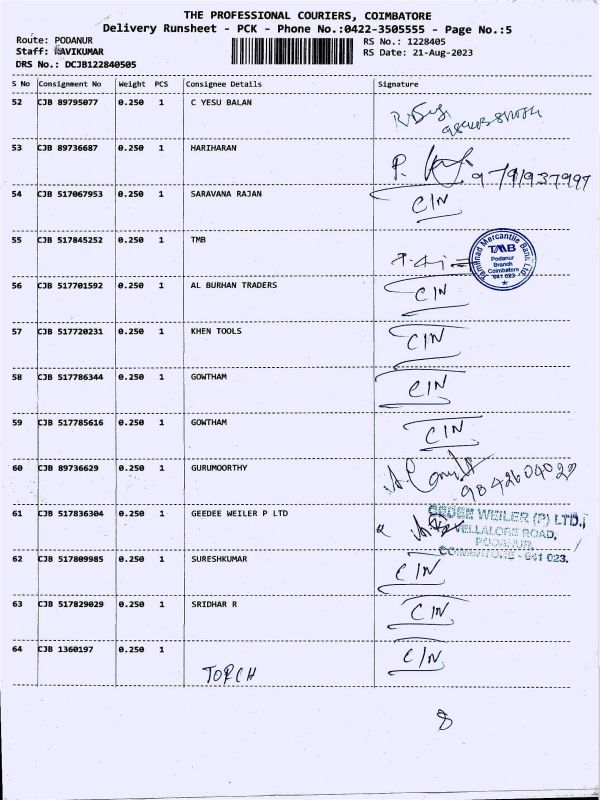 THE PROFESSIONAL COURIERS, COIMBATORE
Delivery Runsheet - PCK - Phone No.:0422-3505555 - Page No.:5
Route: PODANUR
RS No.: 1228405
Staff: RAVIKUMAR
RS Date: 21-Aug-2023
DRS No.: DCJB122840505
S No Consignment No Weight PCS Consignee Details Signature
52 CJB 89795077 0.250 1 C YESU BALAN
53 CJB 89736687 0.250 1 HARIHARAN
P. 9791937999
54 CJB 517067953 0.250 1 SARAVANA RAJAN C/N
55 CJB 517845252 0.250 1 TMB
Tamilnad Mercantile Bank Ltd.
TMB
Podanur
Branch
Coimbatore
641 023
56 CJB 517701592 0.250 1 AL BURHAN TRADERS C/N
57 CJB 517720231 0.250 1 KHEN TOOLS C/N
58 CJB 517786344 0.250 1 GOWTHAM C/N
59 CJB 517785616 0.250 1 GOWTHAM C/N
60 CJB 89736629 0.250 1 GURUMOORTHY
61 CJB 517836304 0.250 1 GEEDEE WEILER P LTD
GEDEE WEILER (P) LTD.,
VELLALORE ROAD,
PODANUR,
COIMBATORE - 641 023.
62 CJB 517809985 0.250 1 SURESHKUMAR C/N
63 CJB 517829029 0.250 1 SRIDHAR R C/N
64 CJB 1360197 0.250 1 C/N
TORCH
8